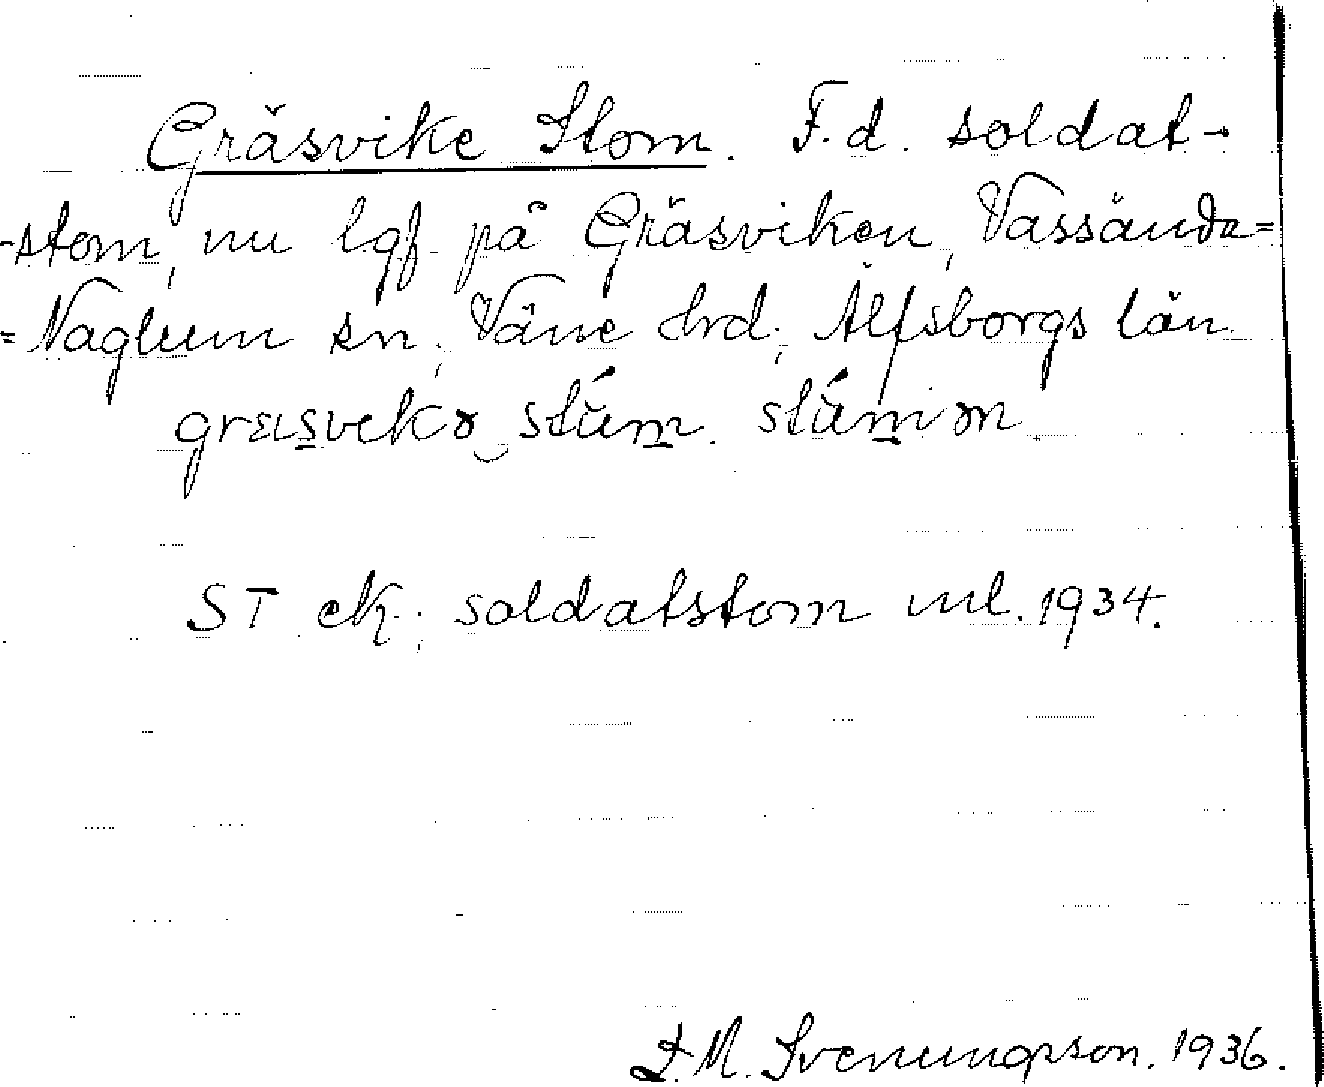 Gräsvike Stom. F.d. soldat-
-stom, nu lgf. på Gräsviken, Vassända=
=Naglum sn, Väne hrd, Älfsborgs län.
ST ek., soldatstom utl. 1934.
D. M. Svenungsson. 1936.